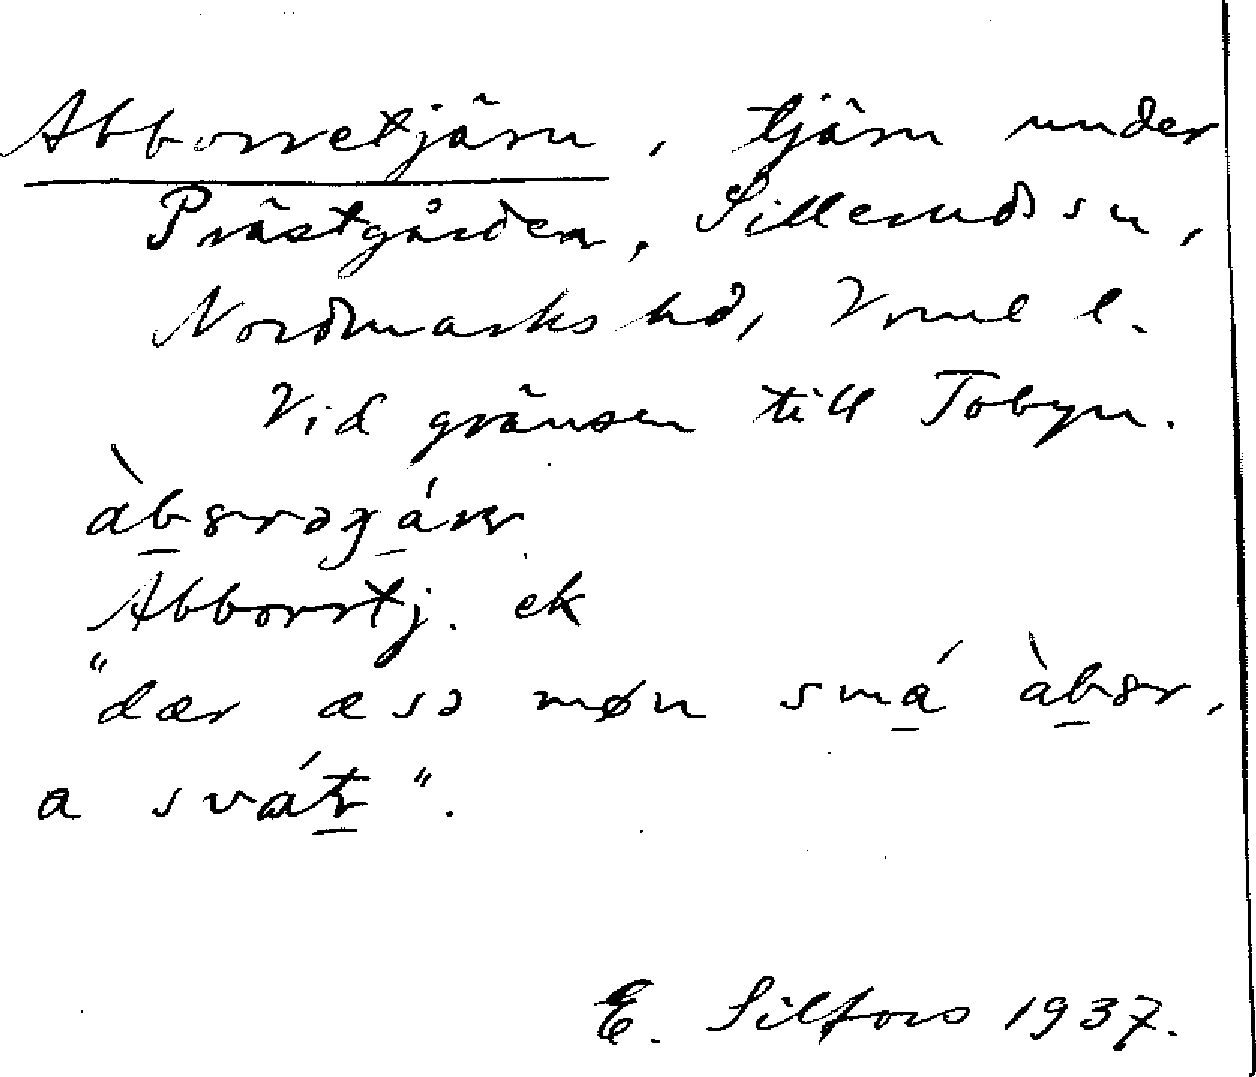 Abborretjärn, tjärn under
Prästgården, Sillerud sn,
Nordmarks hd, Vrml l.
Vid gränsen till Tobyn.
Abborrtj. ek
"dær æsə møn små àbȣr,
a svát̲r".
E. Silfors 1937.